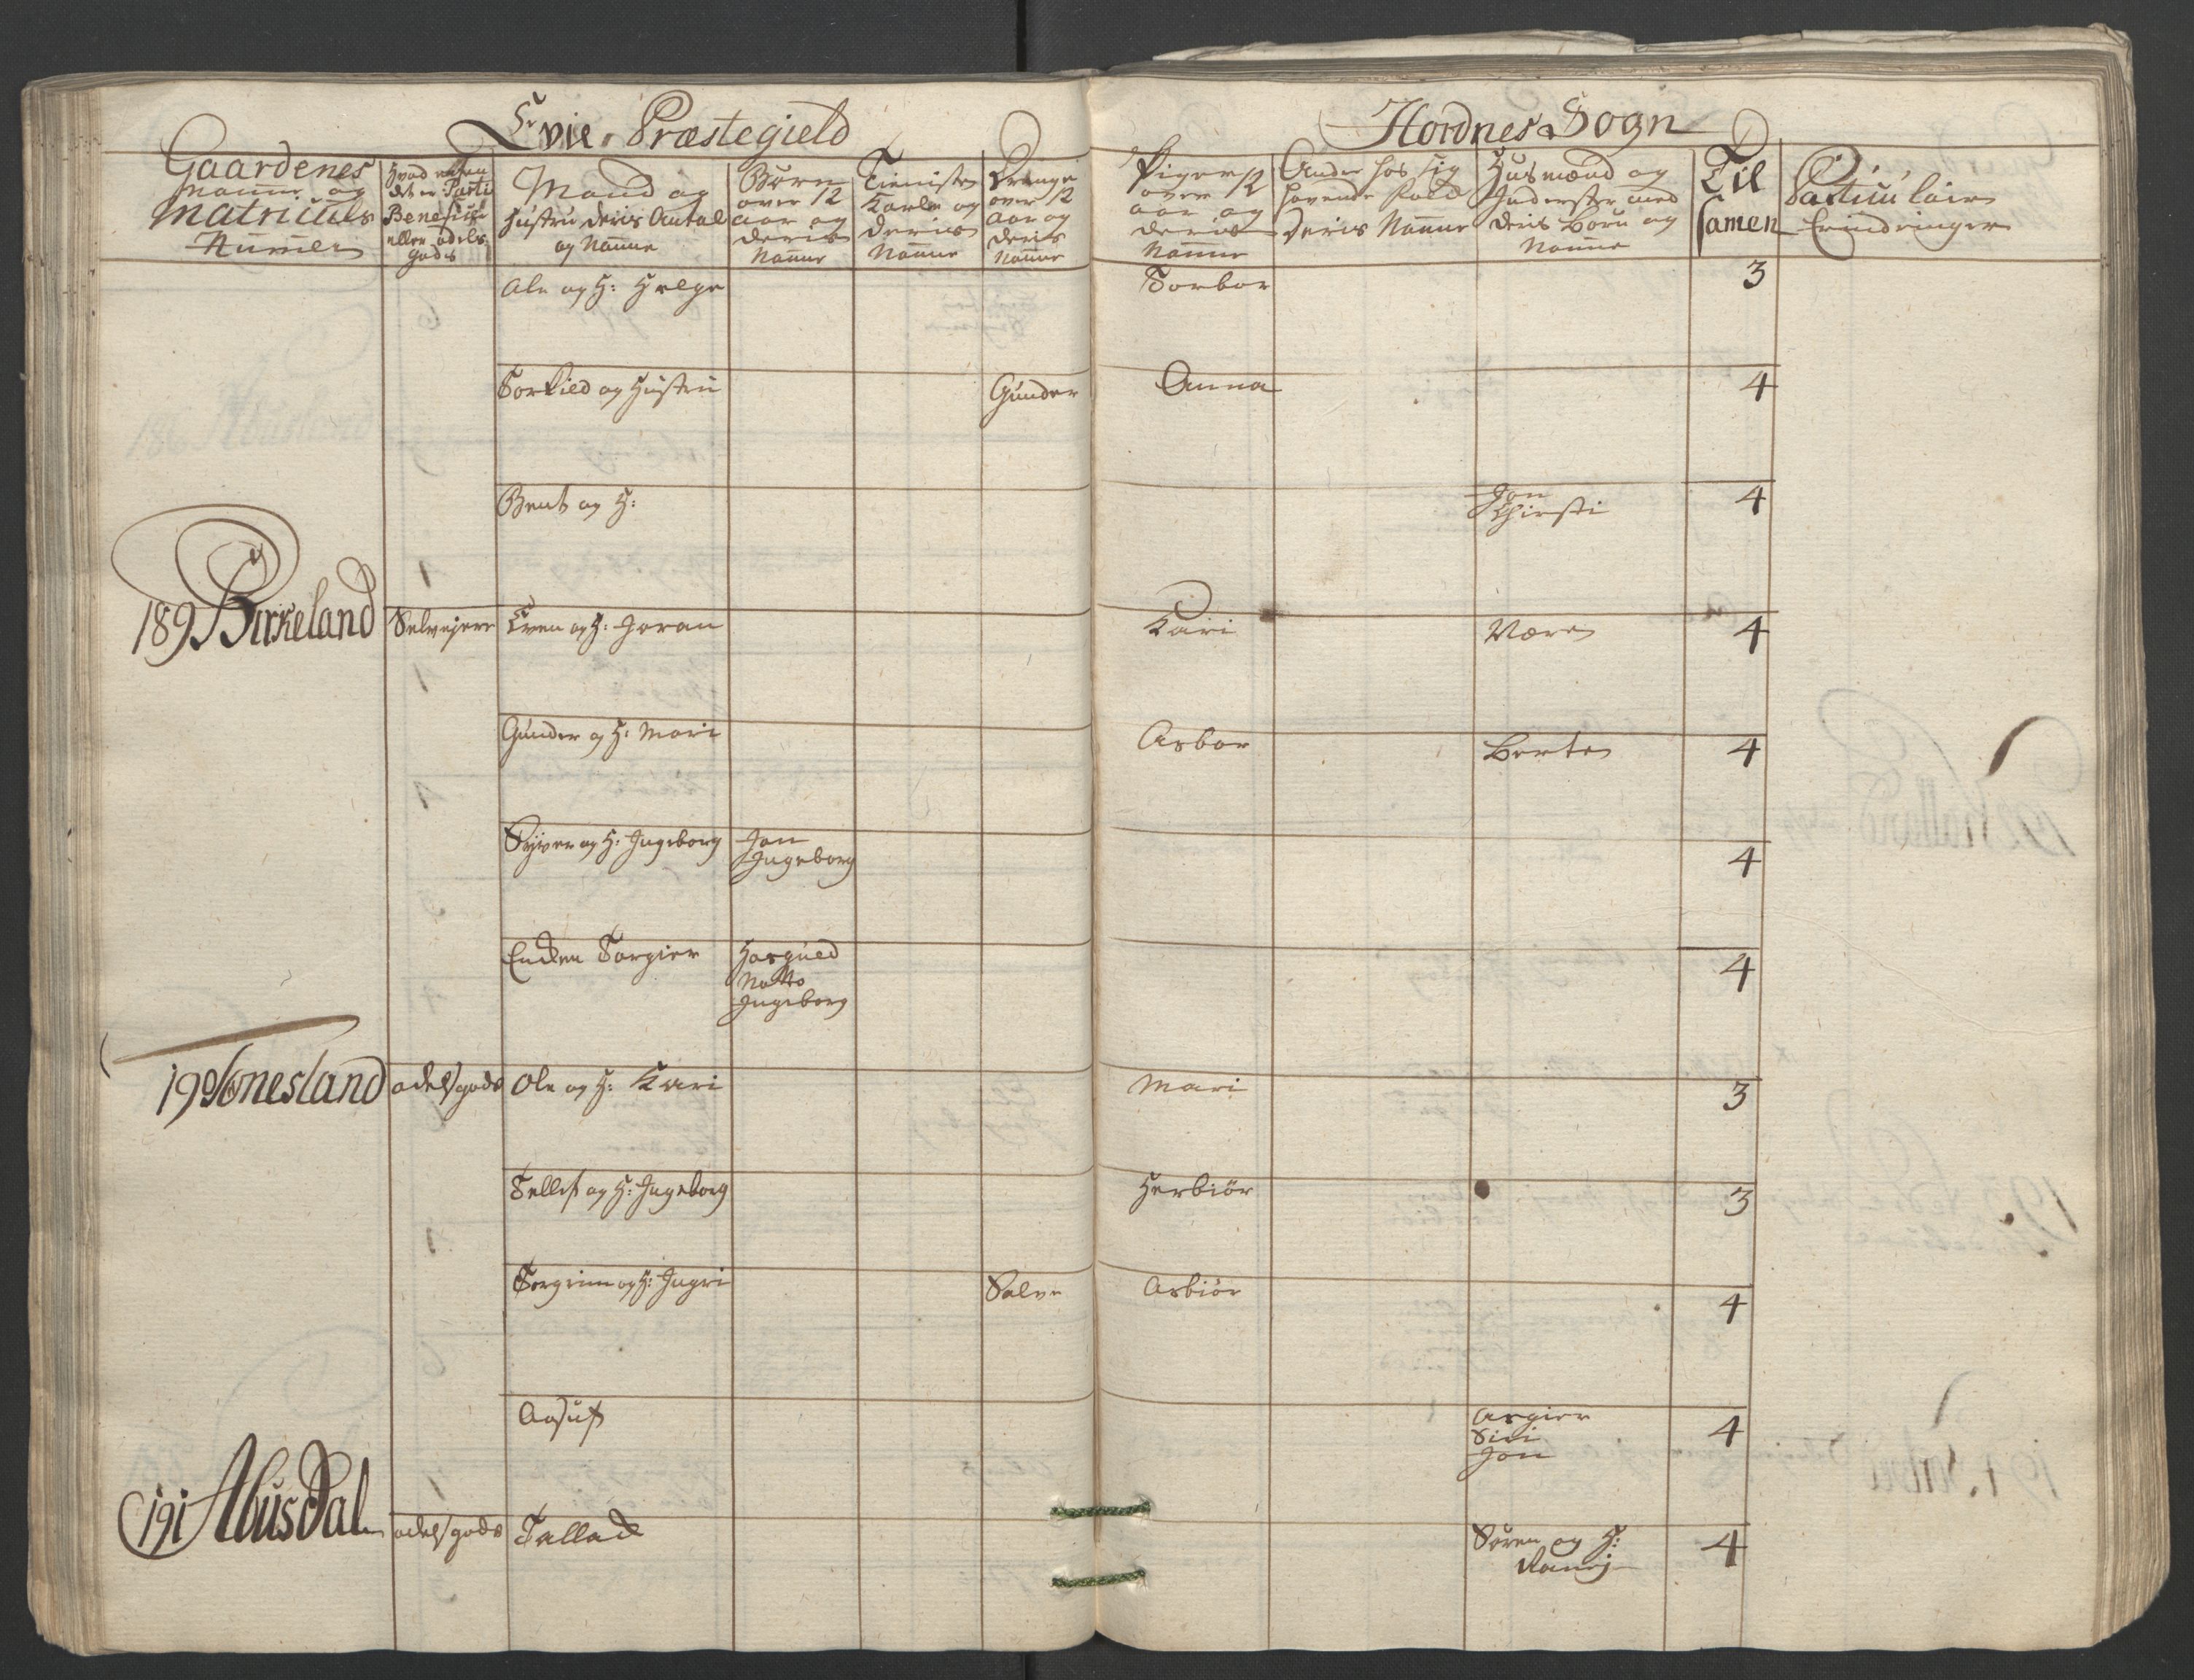 Evie Præstegield
Hordnes Sogn
Gaardenes
Nafne og
Matriculs
Numer
Hvad enten
det er Parti
Benefic
eller odels
gods
Mand og
Hustru deris Antal
og Nafne
Børn
over 12
aar og
deris
Nafne
Tieniste
Karle og
deris
Nafne
Drenge
over 12
aar og
deris
Nafne
Piger
over 12
aar og
deris
Nafne
Andre hos sig
havende Folk
deris Nafne
Husmænd og
Inderster med
deris Børn og
Nafne
Til
samen
Particulair
Erindringer
Ole og H: Helge
Torbor
3
Torkild og Hustru
Gunder
Anna
4
Bent og H:
Jon
Chirsti
4
189 Birkeland
Selvejere
Even og H: Joran
Kari
4
Gunder og H: Mari
Asbor
Berte
4
Syver og H: Ingeborg
Jon
Ingeborg
4
Encken Torgier
Ingeborg
4
190 Tonesland
odelsgods
Ole og H: Kari
Mari
3
Tellef og H: Ingeborg
Herbiør
3
Torgrim og H: Ingri
Salve
Asbiør
4
Asgier
Siri
Jon
4
191 Abusdal
odelsgods
Tallad
Søren og H:
4